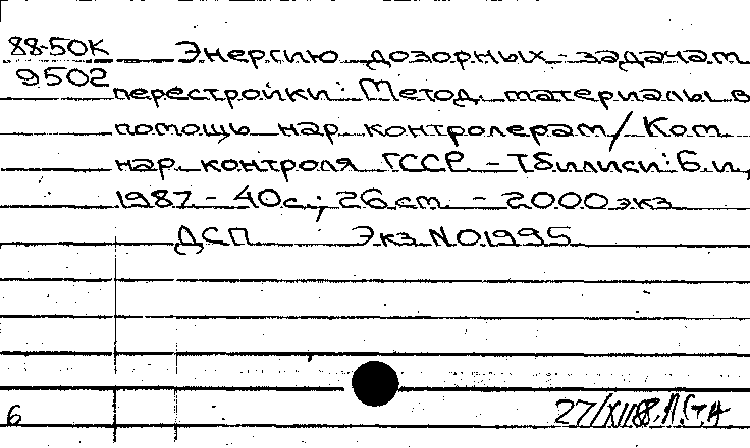 88-50К Энергию дозорных - задачам
9502 перестройки: Метод. материалы в
помощь нар. контролерам / Ком.
нар. контроля ГССР. - Тбилиси: б.и.,
1987 - 40с.; 26 см. - 2000 экз
ДСП. Экз. N 01995
6 27/XII88.